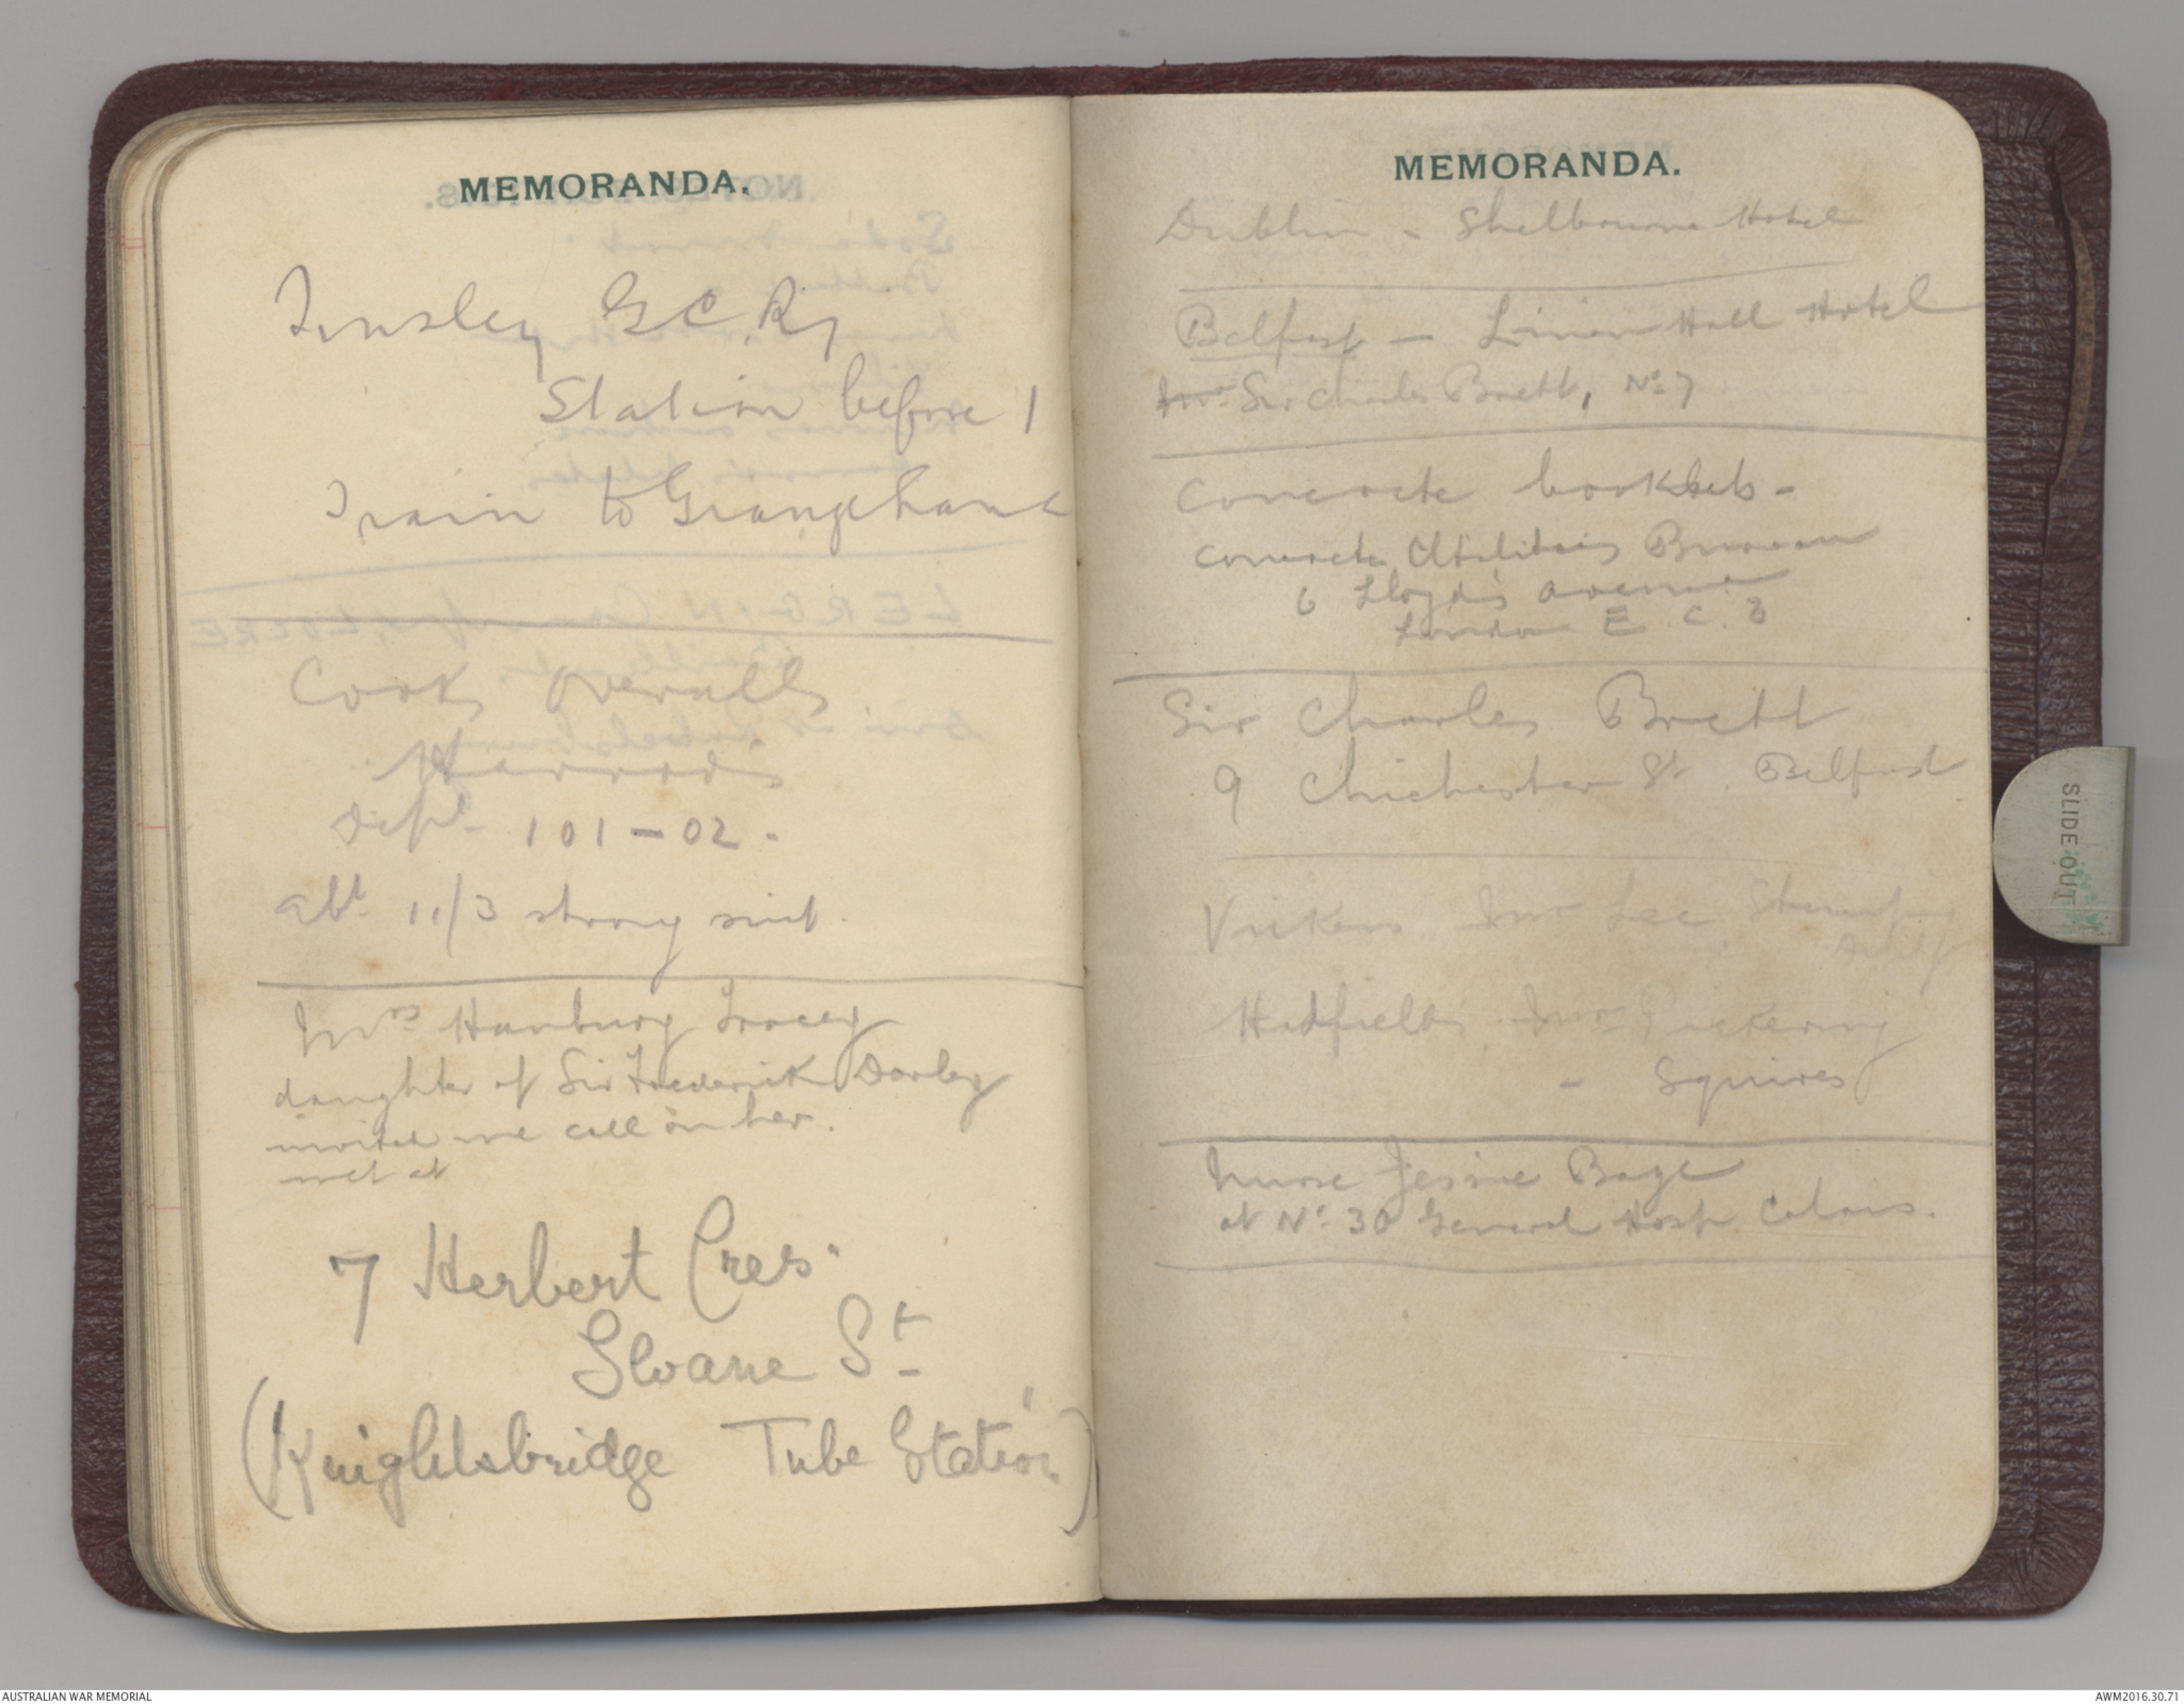 MEMORANDA.
Tinsley G C Ry
Station before 1
Train to
Cook overalls
Harrods
Dept 101-02.
abt. 11/3 strong suit.
Mrs Hanbury Tracey
daughter of Sir Frederick Darley
invited me call on her.
met at
7 Herbert Cres.
Sloane St
(Knightsbridge Tube Station)
MEMORANDA.
Dublin - Shelbourne Hotel
Belfast - Linen Hall Hotel
Mr. Sir Charles Brett, No. 7
Concrete booklets -
Concrete Utilities Bureau
6 Lloyd's Avenue
London E. C. 3
Sir Charles Brett
9 Chichester St. Belfast
Vickers Mr Lee,
Hadfields Mr Pickering
- Squires
Nurse Jessie Bage
at No. 30 General Hosp Calais.
SLIDE OUT
AUSTRALIAN WAR MEMORIAL
AWM2016.30.71